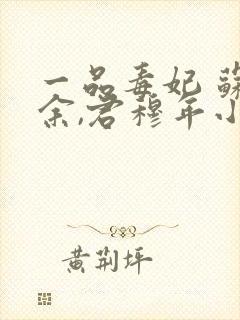 一品毒妃 蘇
余,君穆年小
黄荆坪